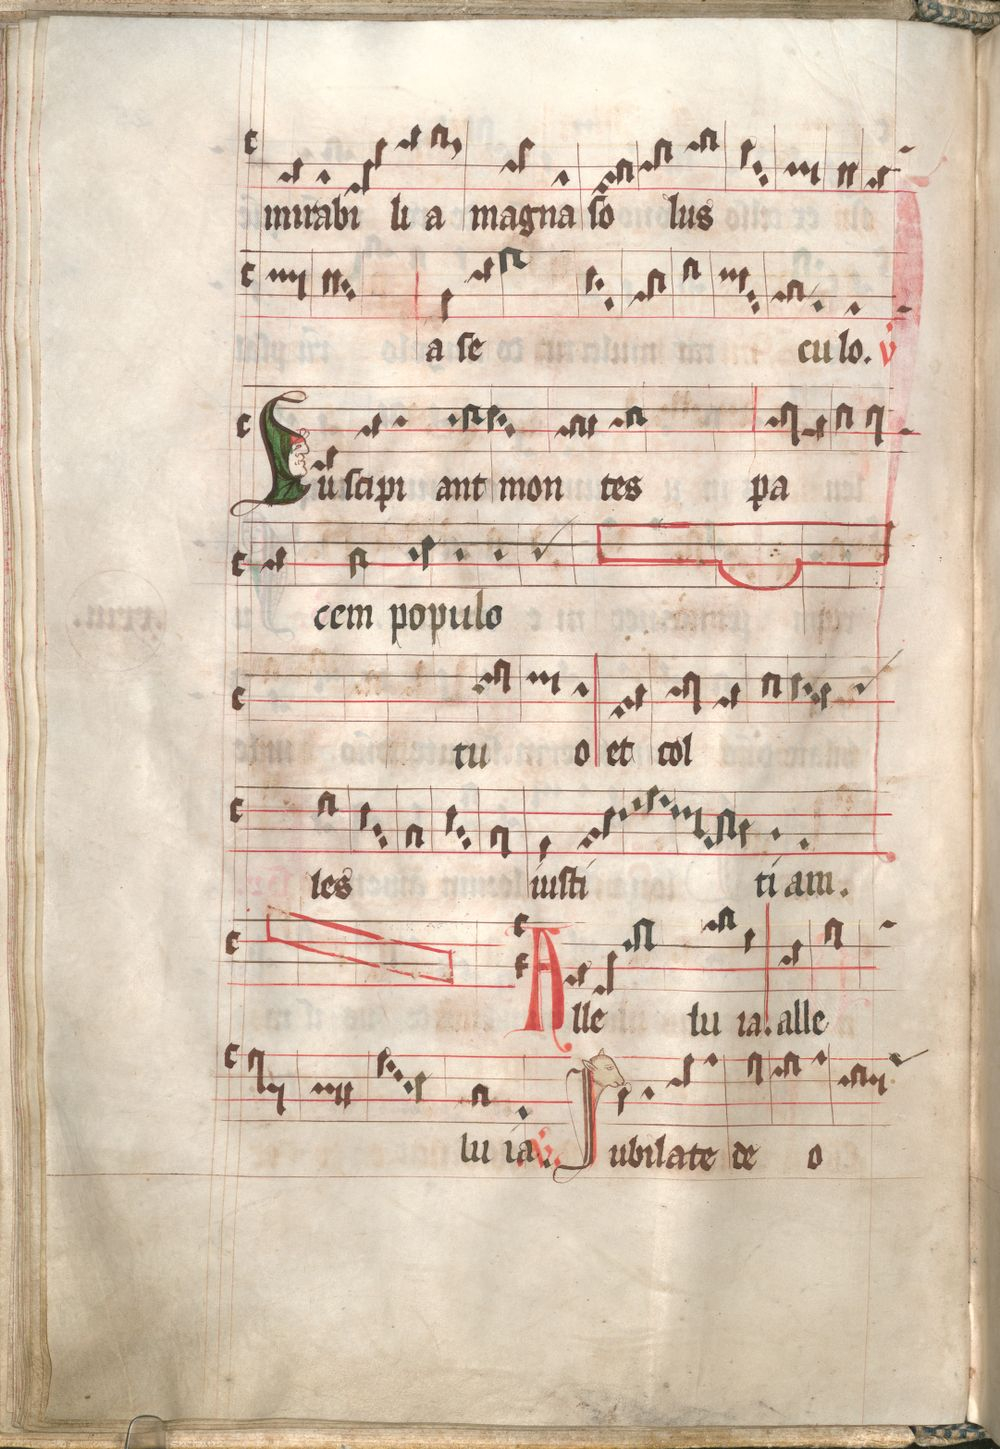 mirabi li a magna so lus
a se culo. v
Suscipi ant mon tes pa
cem populo
tu o et col
les iusti ti am.
Alle lu ia. alle
lu ia. v. Jubilate de o